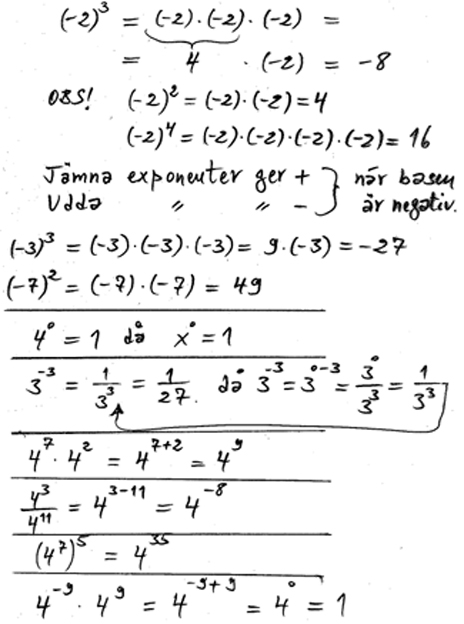 (-2)³ = (-2)·(-2)·(-2) =
= 4 ·(-2) = -8
OBS! (-2)² = (-2)·(-2) = 4
(-2)⁴ = (-2)·(-2)·(-2)·(-2) = 16
Jämna exponenter ger + } när basen
Udda " " - } är negativ.
(-3)³ = (-3)·(-3)·(-3) = 9·(-3) = -27
(-7)² = (-7)·(-7) = 49
4⁰ = 1 då x⁰ = 1
3⁻³ = 1/3³ = 1/27. då 3⁻³ = 3⁰⁻³ = 3⁰/3³ = 1/3³
4⁷·4² = 4⁷⁺² = 4⁹
4³/4¹¹ = 4³⁻¹¹ = 4⁻⁸
(4⁷)⁵ = 4³⁵
4⁻⁹·4⁹ = 4⁻⁹⁺⁹ = 4⁰ = 1